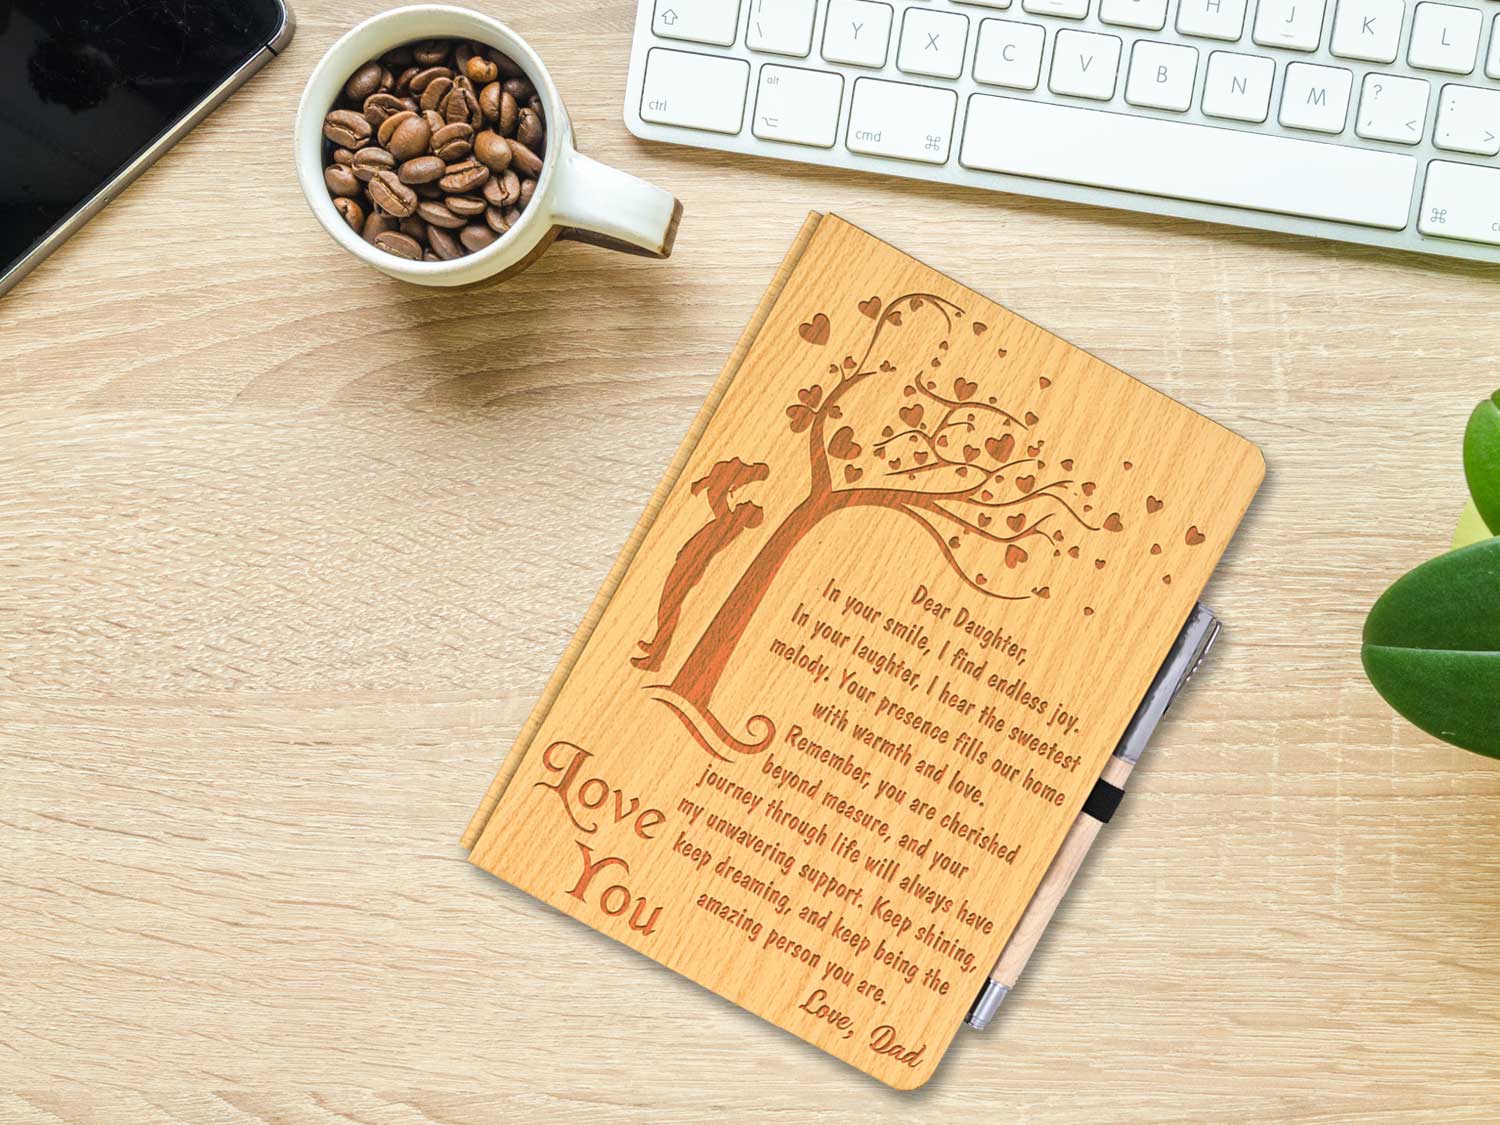 \
Y
X
C
V
B
N
M
H
J
K
L
?
<
:
>
ctrl
alt
cmd
Dear Daughter,
In your smile, I find endless joy.
In your laughter, I hear the sweetest
melody. Your presence fills our home
with warmth and love.
Remember, you are cherished
beyond measure, and your
journey through life will always have
my unwavering support. Keep shining,
keep dreaming, and keep being the
amazing person you are.
Love, Dad
Love
You